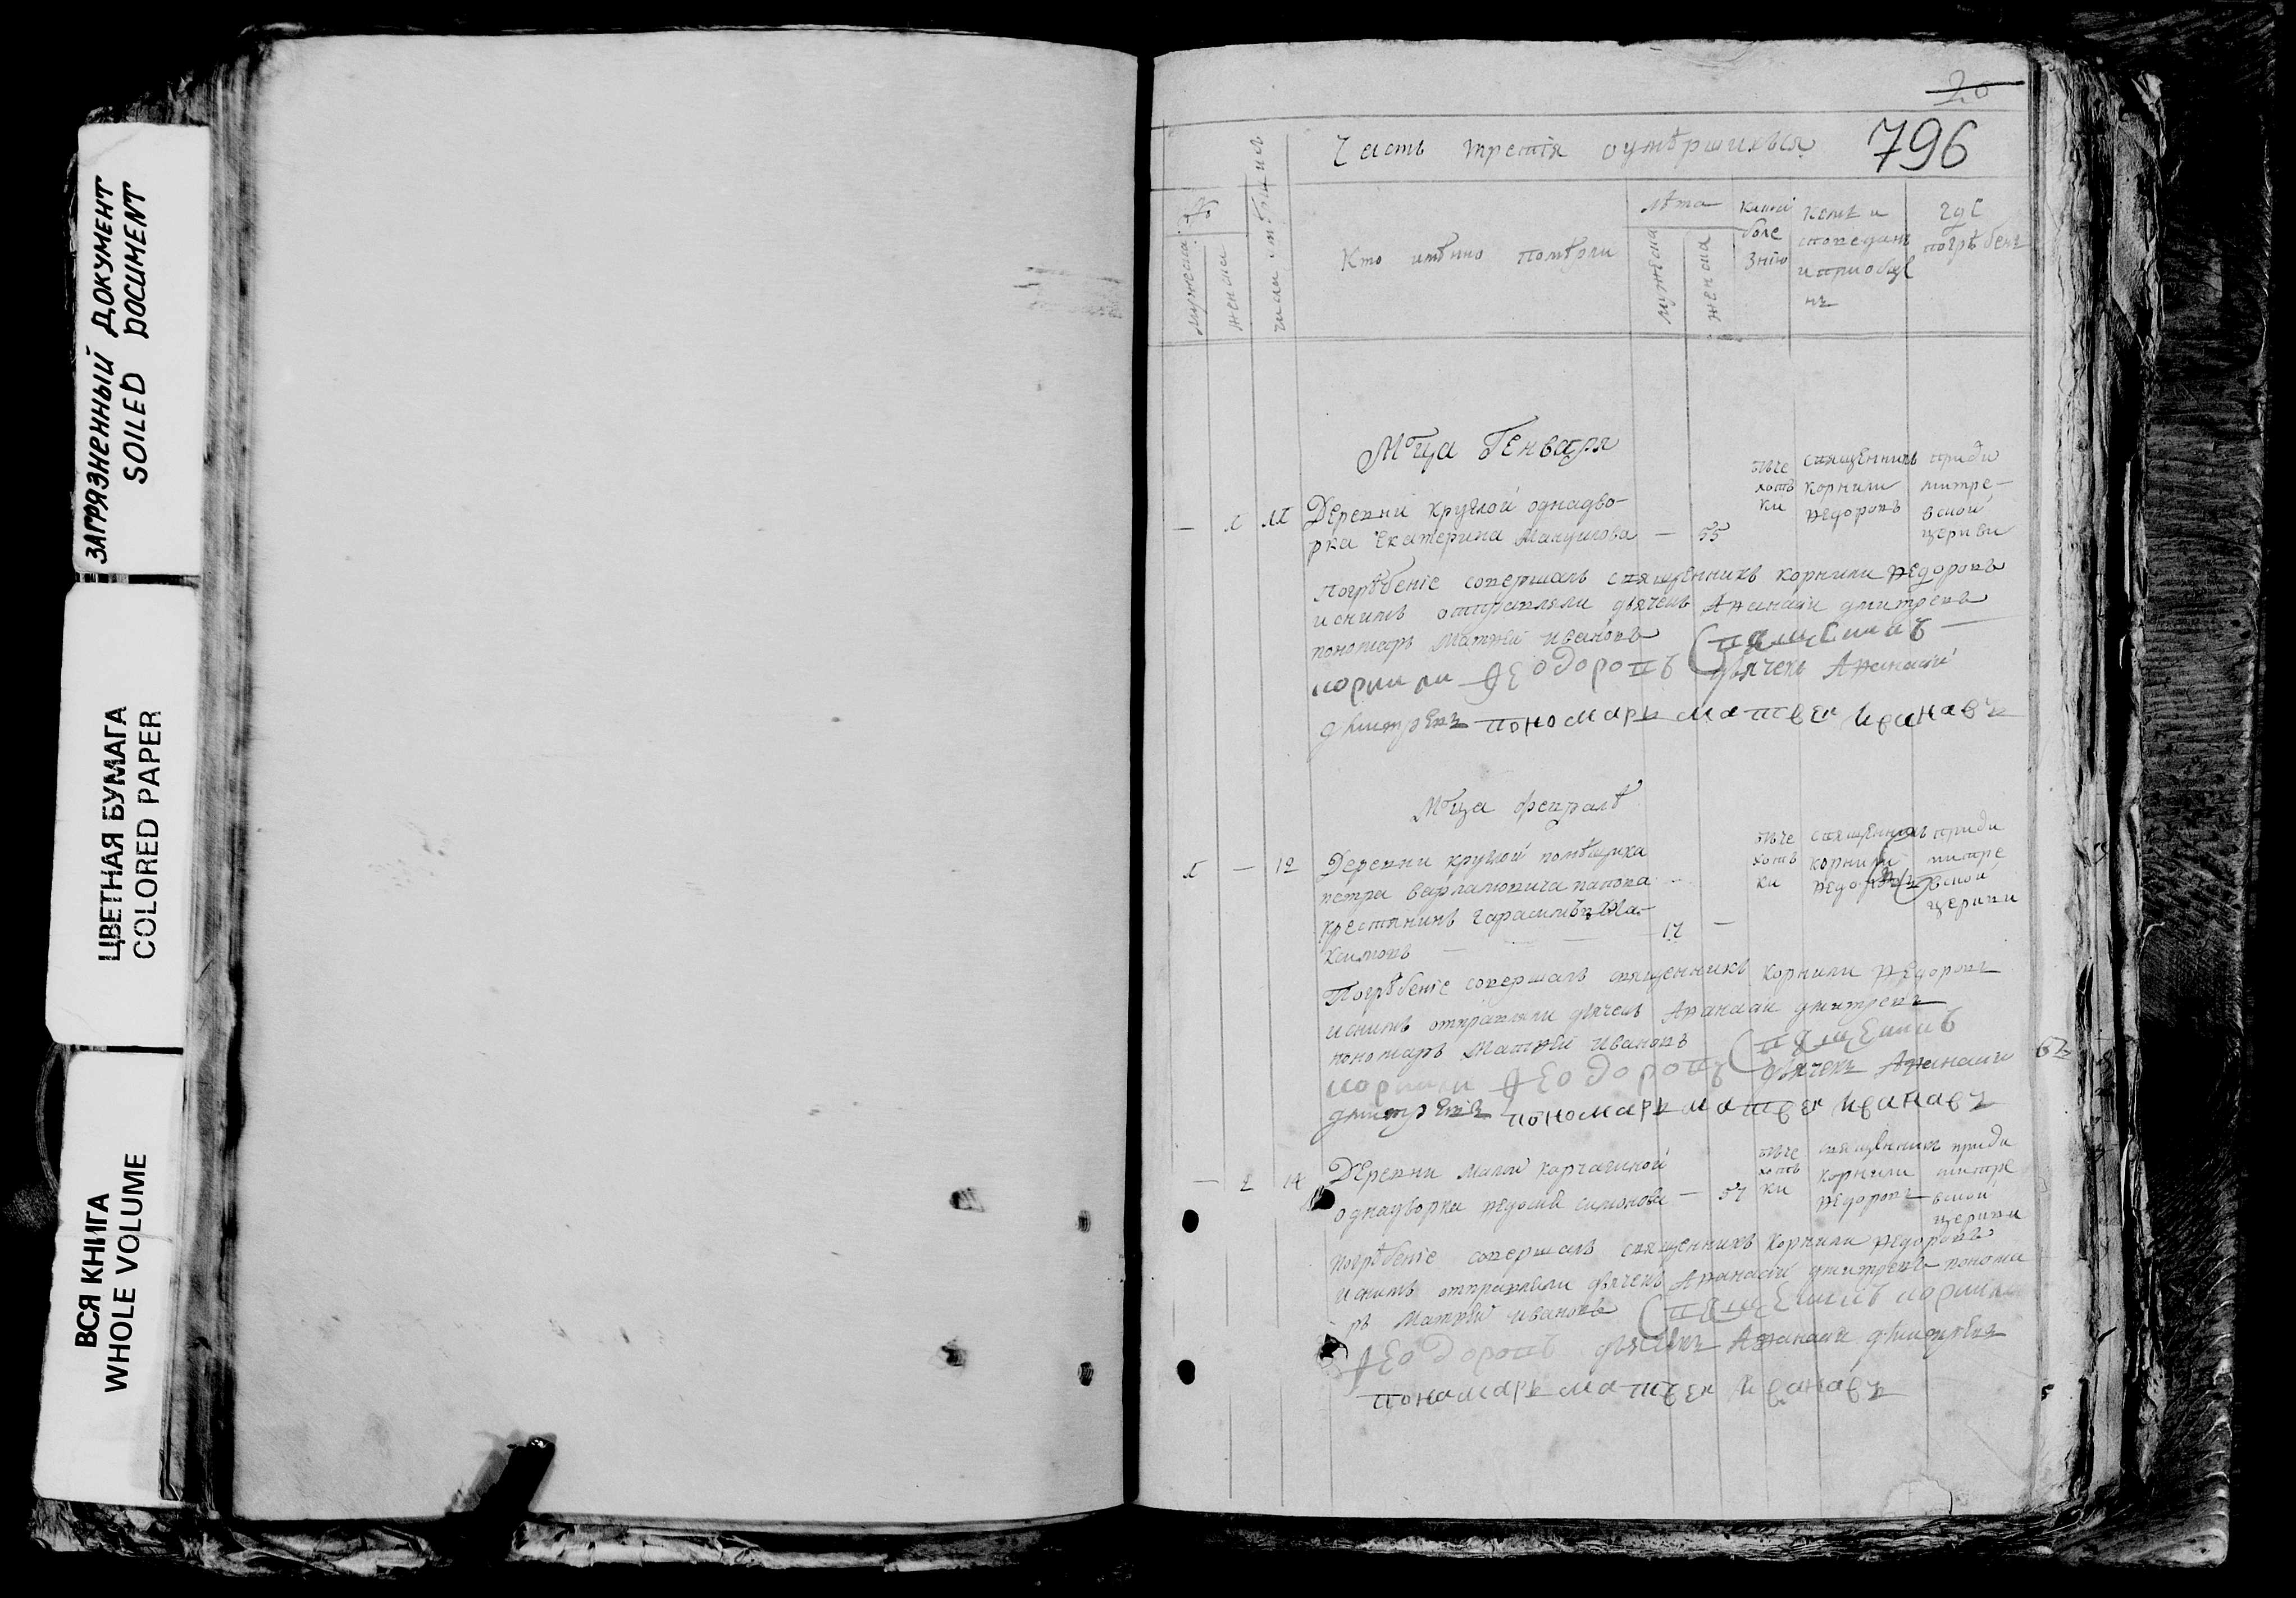 ЗАГРЯЗНЕННЫЙ ДОКУМЕНТ
SOILED DOCUMENT
ЦВЕТНАЯ БУМАГА
COLORED PAPER
ВСЯ КНИГА
WHOLE VOLUME
20
796
Часть третiя оумѣршихъся
№
мужеска
женска
число мѣсяцъ
Кто имѣнно помѣрли
лѣта
мужеска
женска
какой
боле
знiю
кемъ и
споведанъ
и приобще
нъ
где
погрѣбенъ
Мца Генваря
Деревни круглой однадво-
рка Екатерина
55
чехотъ
ки
священникъ
корнили
Ѳедоровъ
при ди
митре-
вской
церкви
погрѣбенiе совершалъ священникъ корнили Ѳедоровъ
и снимъ отправляли дьячекъ Аѳанасiй дмитревъ
пономарь Матѳей ивановъ Священникъ
корнили Ѳеодоровъ дьячекъ Аѳанасiй
дмитревъ пономарь матвеи Иванавъ
Мца февралѣ
1 — 12
Деревни круглой помѣщика
петра варламовича папова
крестянинъ гарасимъ Ма-
ксимовъ
17 —
чехотъ
ки
священникъ
корнили
Ѳедоровъ
при ди
митре
вской
церкви
Погрѣбенiе совершалъ священникъ корнили Ѳедоровъ
и снимъ отправляли дьячекъ Аѳанасiи дмитревъ
пономарь Матѳей ивановъ Священникъ
корнили Ѳеодоровъ дьячекъ Аѳанасiи
дмитревъ пономарь матвеи Иванавъ
— 2 14
Деревни малой карчагиной
однадворка Ѳедосiя симонова — 57
чехотъ
ки
священникъ
корнили
Ѳедоровъ
при ди
митре
вской
церкви
погрѣбенiе совершалъ священникъ корнили Ѳедоровъ
и снимъ отправляли дьячекъ Аѳанасiй дмитревъ понома
рь Матѳей ивановъ Священникъ корнили
Ѳеодоровъ дьячекъ Аѳанасiи дмитревъ
понамарь матвеи Иванавъ